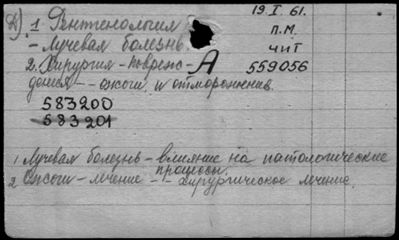 19.I.61.
К) 1. Рентгенология
П.М.
- Лучевая болезнь.
ЧИТ
2. Хирургия - повреж- А
559056
дения - - ожоги и отморожения.
583200
583201
1. Лучевая болезнь - влияние на патологические
процессы.
2. Ожоги - лечение - - хирургическое лечение.